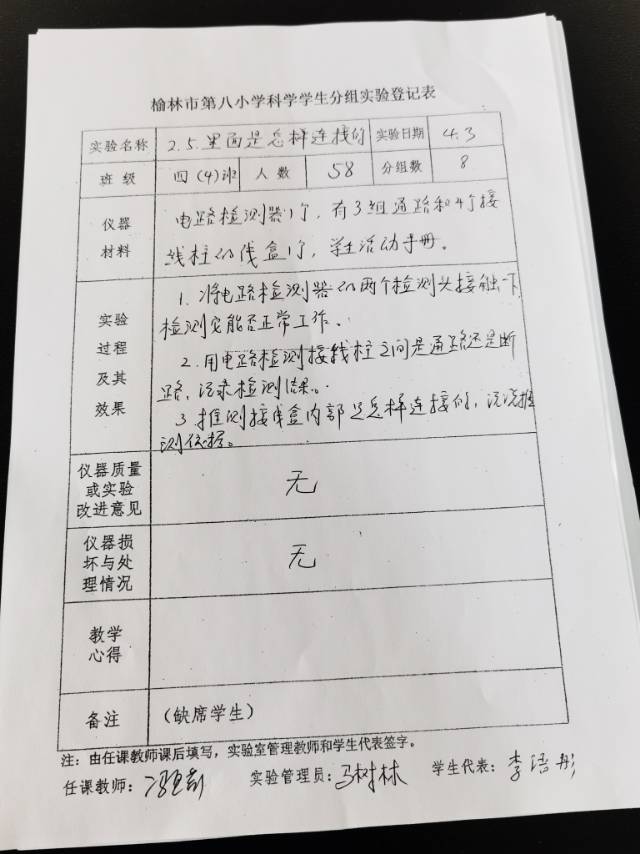 榆林市第八小学科学学生分组实验登记表
实验名称 2.5.里面是怎样连接的 实验日期 4.3
班 级 四(4)班 人 数 58 分组数 8
仪器 材料 电路检测器1个,有3组通路和4个接
线柱的线盒1个,学生活动手册。
实验 过程 及其 效果
1.将电路检测器的两个检测头接触一下,
检测它能否正常工作。
2.用电路检测接线柱之间是通路还是断
路,记录检测结果。
3.推测接线盒内部是怎样连接的,说说推
测依据。
仪器质量 或实验 改进意见 无
仪器损 坏与处 理情况 无
教学 心得
备注 (缺席学生)
注:由任课教师课后填写,实验室管理教师和学生代表签字。
任课教师: 实验管理员:马树林 学生代表:李语彤